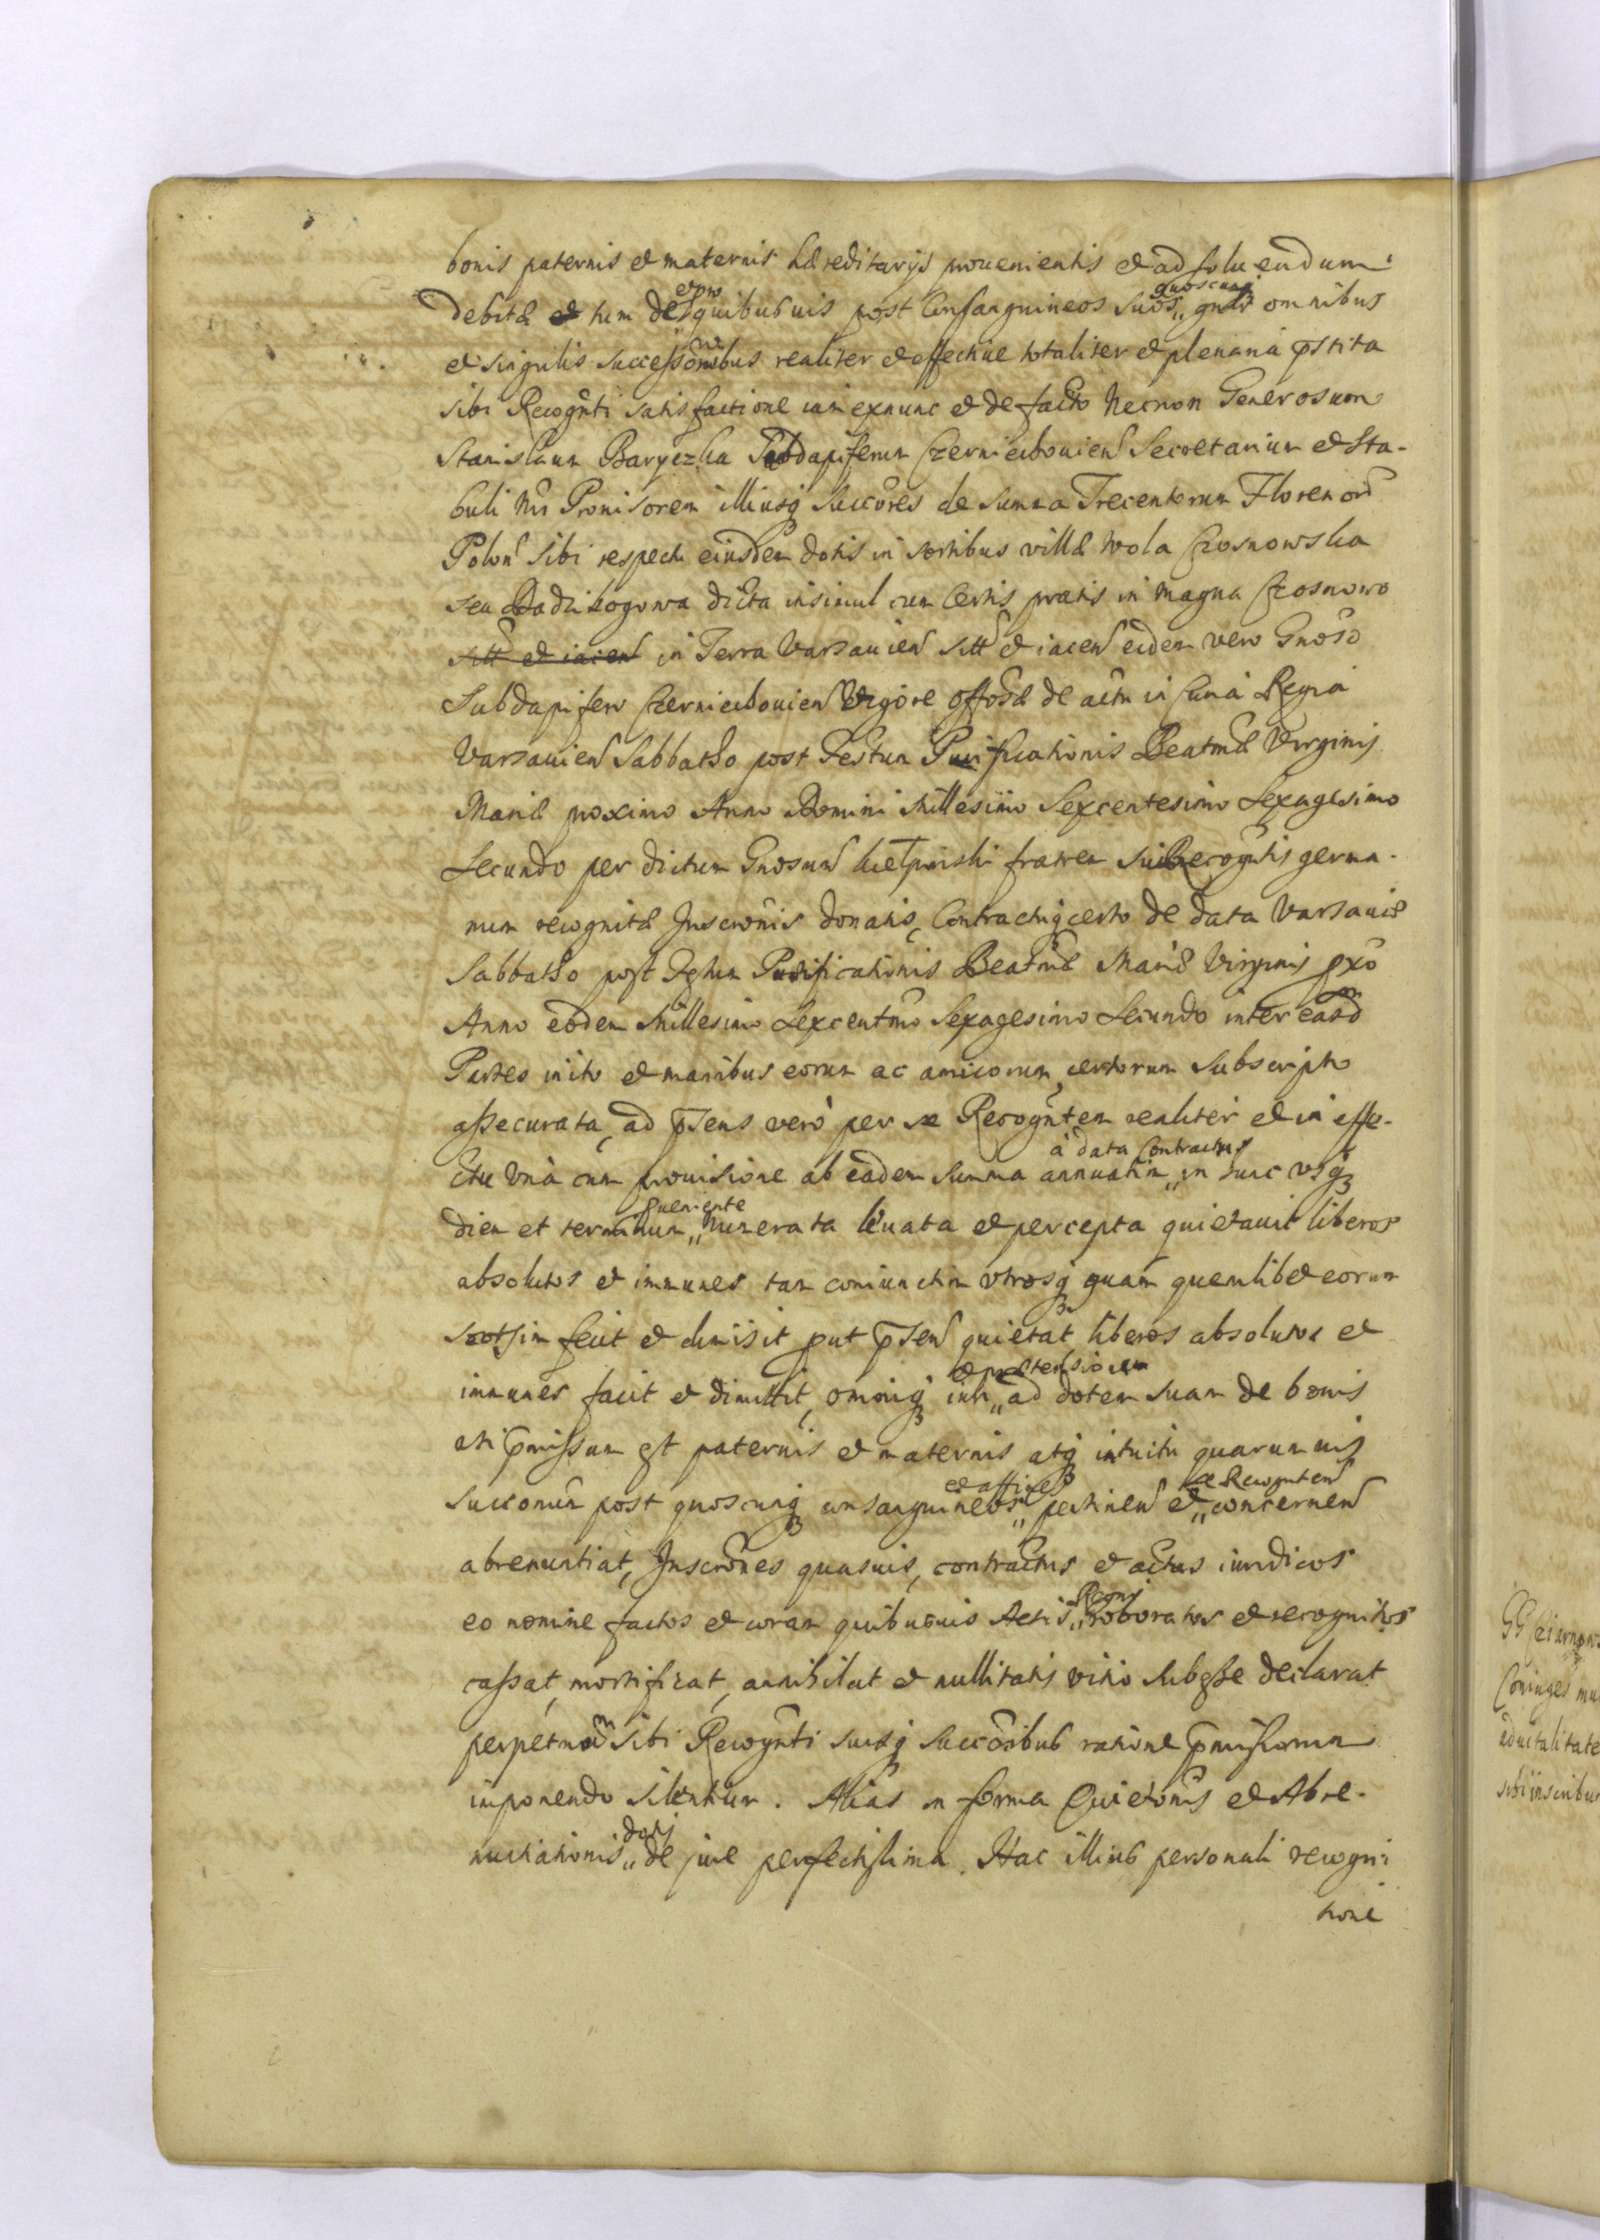 bonis paternis et maternis hæreditarijs prouenientis et ad soluendum
debitæ et tum de et pro quibusuis post Consanguineos suos quoscunq gnãlr omnibus
et singulis successionibus realiter et effectiue totaliter et plenariá pstita
sibi Recognti satisfactione iam exnunc et de facto Necnon Generosum
Stanislaum Baryczka Subdapiferum Czerniechouien Secretarium et Sta-
buli Nri Prouisorem illiusq Succores de Summa Trecentorum Florenor
Polon sibi respectu eiusdem dotis in sortibus villæ Wola Czosnowska
seu dicta insimul cum certis pratis in Magna Czosnowo
sitt et iacen in Terra Varsauien sitt et iacen eidem vero Gnoso
Subdapifero Czerniechouien vigore offosæ de actu in Curiá Regiá
Varsauien Sabbatho post Festum Purificationis Beatmæ Virginis
Mariæ proximo Anno Domini Millesimo Sexcentesimo Sexagesimo
Secundo per dictum Gnosum fratrem sui Recogntis germa-
num recognitæ Inscronis donatis, Contractuiq certo de data Varsauiæ
Sabbatho post Festum Purificationis Beatmæ Mariæ Virginis pxo
Anno eodem Millesimo Sexcentmo Sexagesimo Secundo inter easd
Partes inito et manibus eorum ac amicorum certorum subscripto
assecurata, ad psens vero per se Recognten realiter et in effe-
ctu vná cum prouisione ab eadem summa annuatim à data Contractus in hunc vsq
diem et terminum pueniente numerata leuata et percepta quietauit liberos
absolutos et immunes tam coniunctim vtrosq quam quemlibet eorum
seorsim fecit et dimisit put psen quietat liberos absolutos et
immunes facit et dimittit, omniq iuri et prætensioni ad dotem suam de bonis
uti pmissum est paternis et maternis atq intuitu quarumuis
succonum post quoscunq consanguineos et affines pertinen et se Recognten concernen
abrenuntiat, Inscrones quasuis, contractus et actus iuridicos
eo nomine factos et coram quibusuis Actis roboratos et recognitos
cassat, mortificat, annihilat et nullitatis vitio subesse declarat
perpetuum sibi Recognti suisq Succoribus ratione pmissorum
imponendo silentium. Alias in forma Quietonis et Abre-
nuntiationis doti de jure perfectissima. Hac illius personali recogni
tione
Coniuges